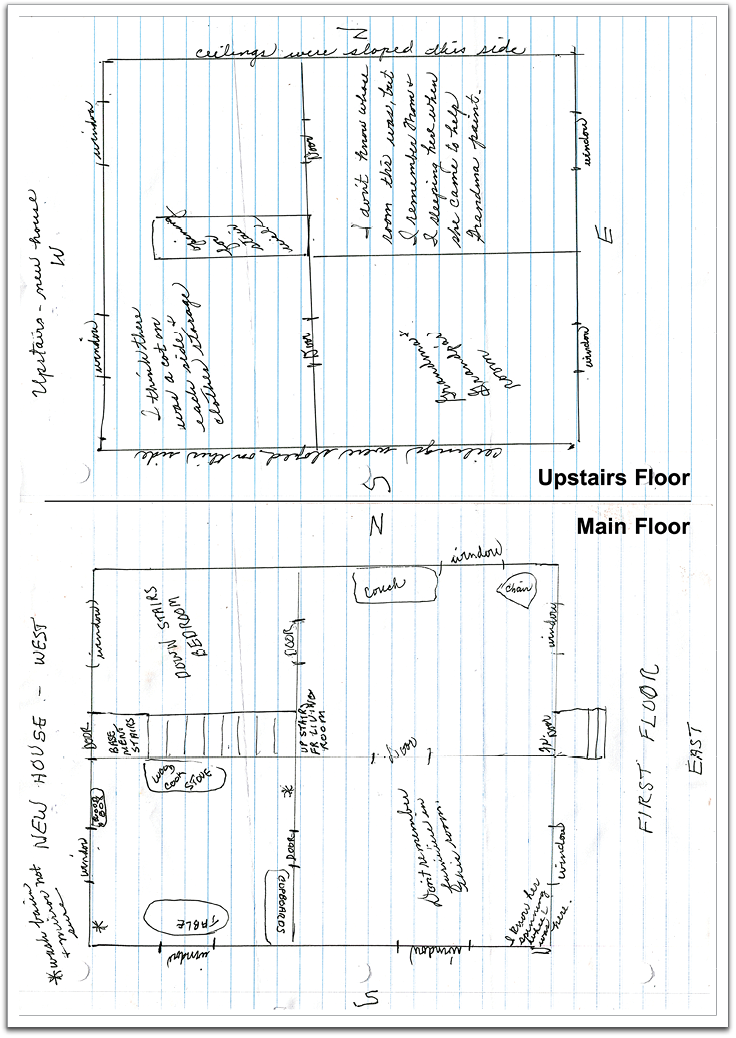 N
ceilings were sloped this side
Upstairs - new house
W
window
window
Door
Door
I don't know whose
room this was, but
I remember Mom &
I sleeping here when
she came to help
Grandma paint.
window
window
E
I think there
was a cot on
each side &
clothes storage
Grandma &
Grandpa's
room
ceilings were sloped on this side
S
Upstairs Floor
Main Floor
N
NEW HOUSE - WEST
window
DOWN STAIRS
BEDROOM
DOOR
couch
window
chair
window
DOOR
BASE
MENT
STAIRS
UP STAIR
FR LIVING
ROOM
Door
DOOR
FIRST FLOOR
EAST
WOOD
COOK
STOVE
WOOD
BOX
window
*
DOOR
Don't remember
furniture in
this room.
window
*wash basin
+ mirror not
sure
*
TABLE
CUPBOARDS
I know her
spinning
wheel
was
here.
window
window
S